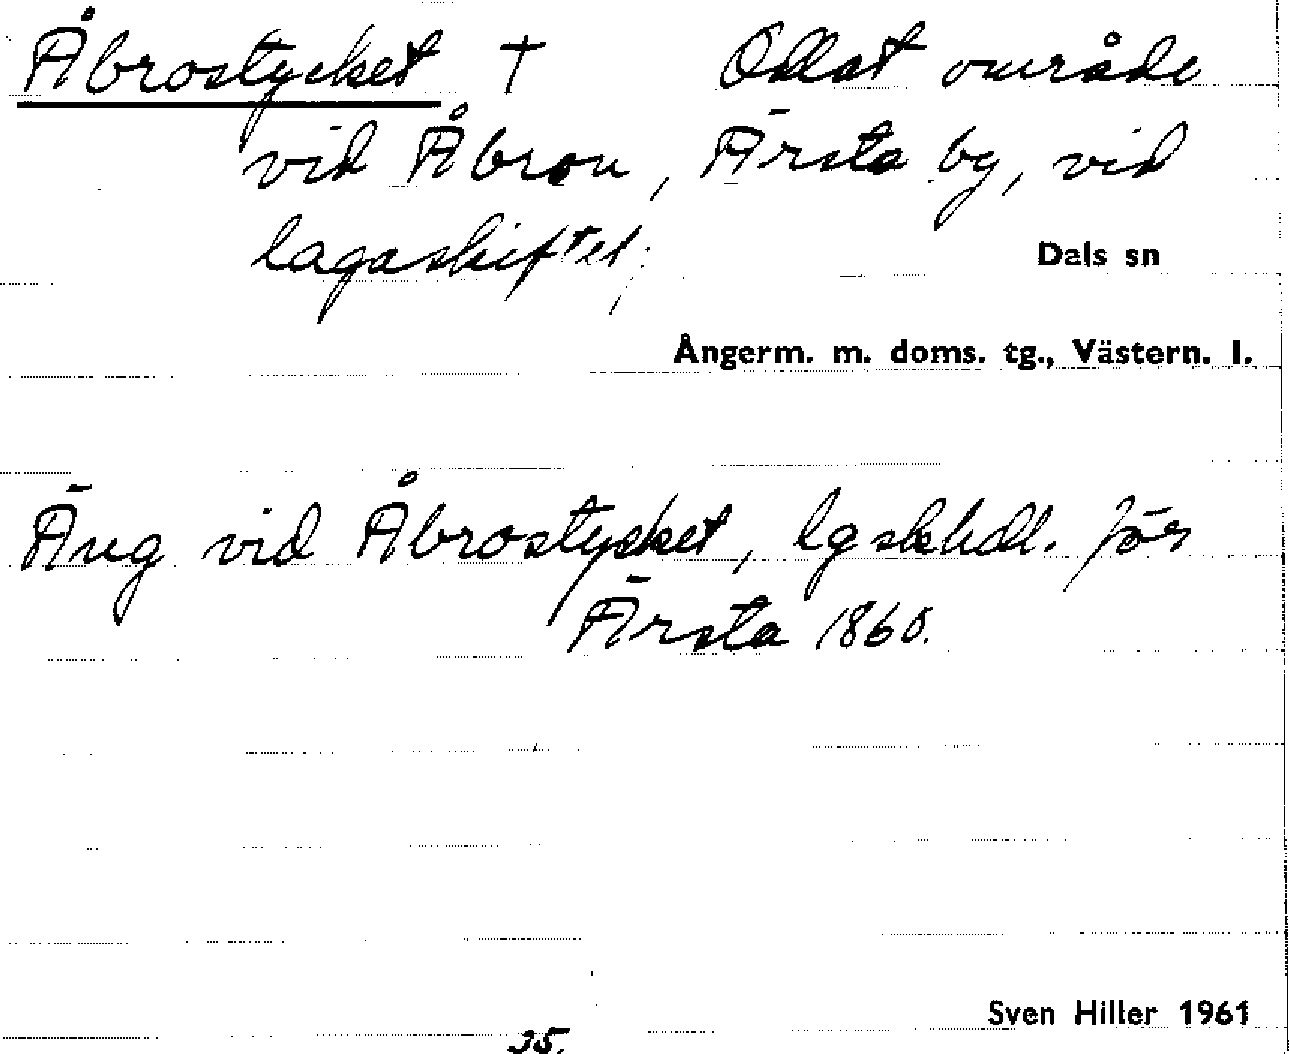 Åbrostycket † Odlat område
vid Åbron, Ärsta by, vid
lagaskiftet;
Dals sn
Ångerm. m. doms. tg., Västern. l.
Äng vid Åbrostycket, lgskhdl. för
Ärsta 1860.
Sven Hiller 1961
35.